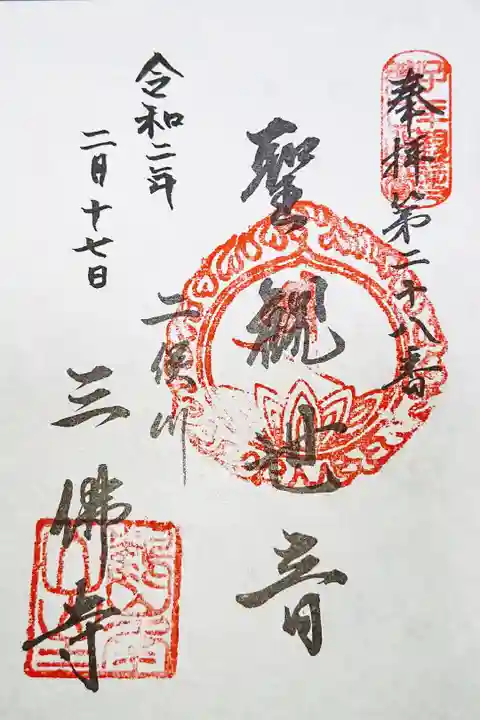 奉拝第二十八番
聖観世音
二俣川
三佛寺
令和二年
二月十七日